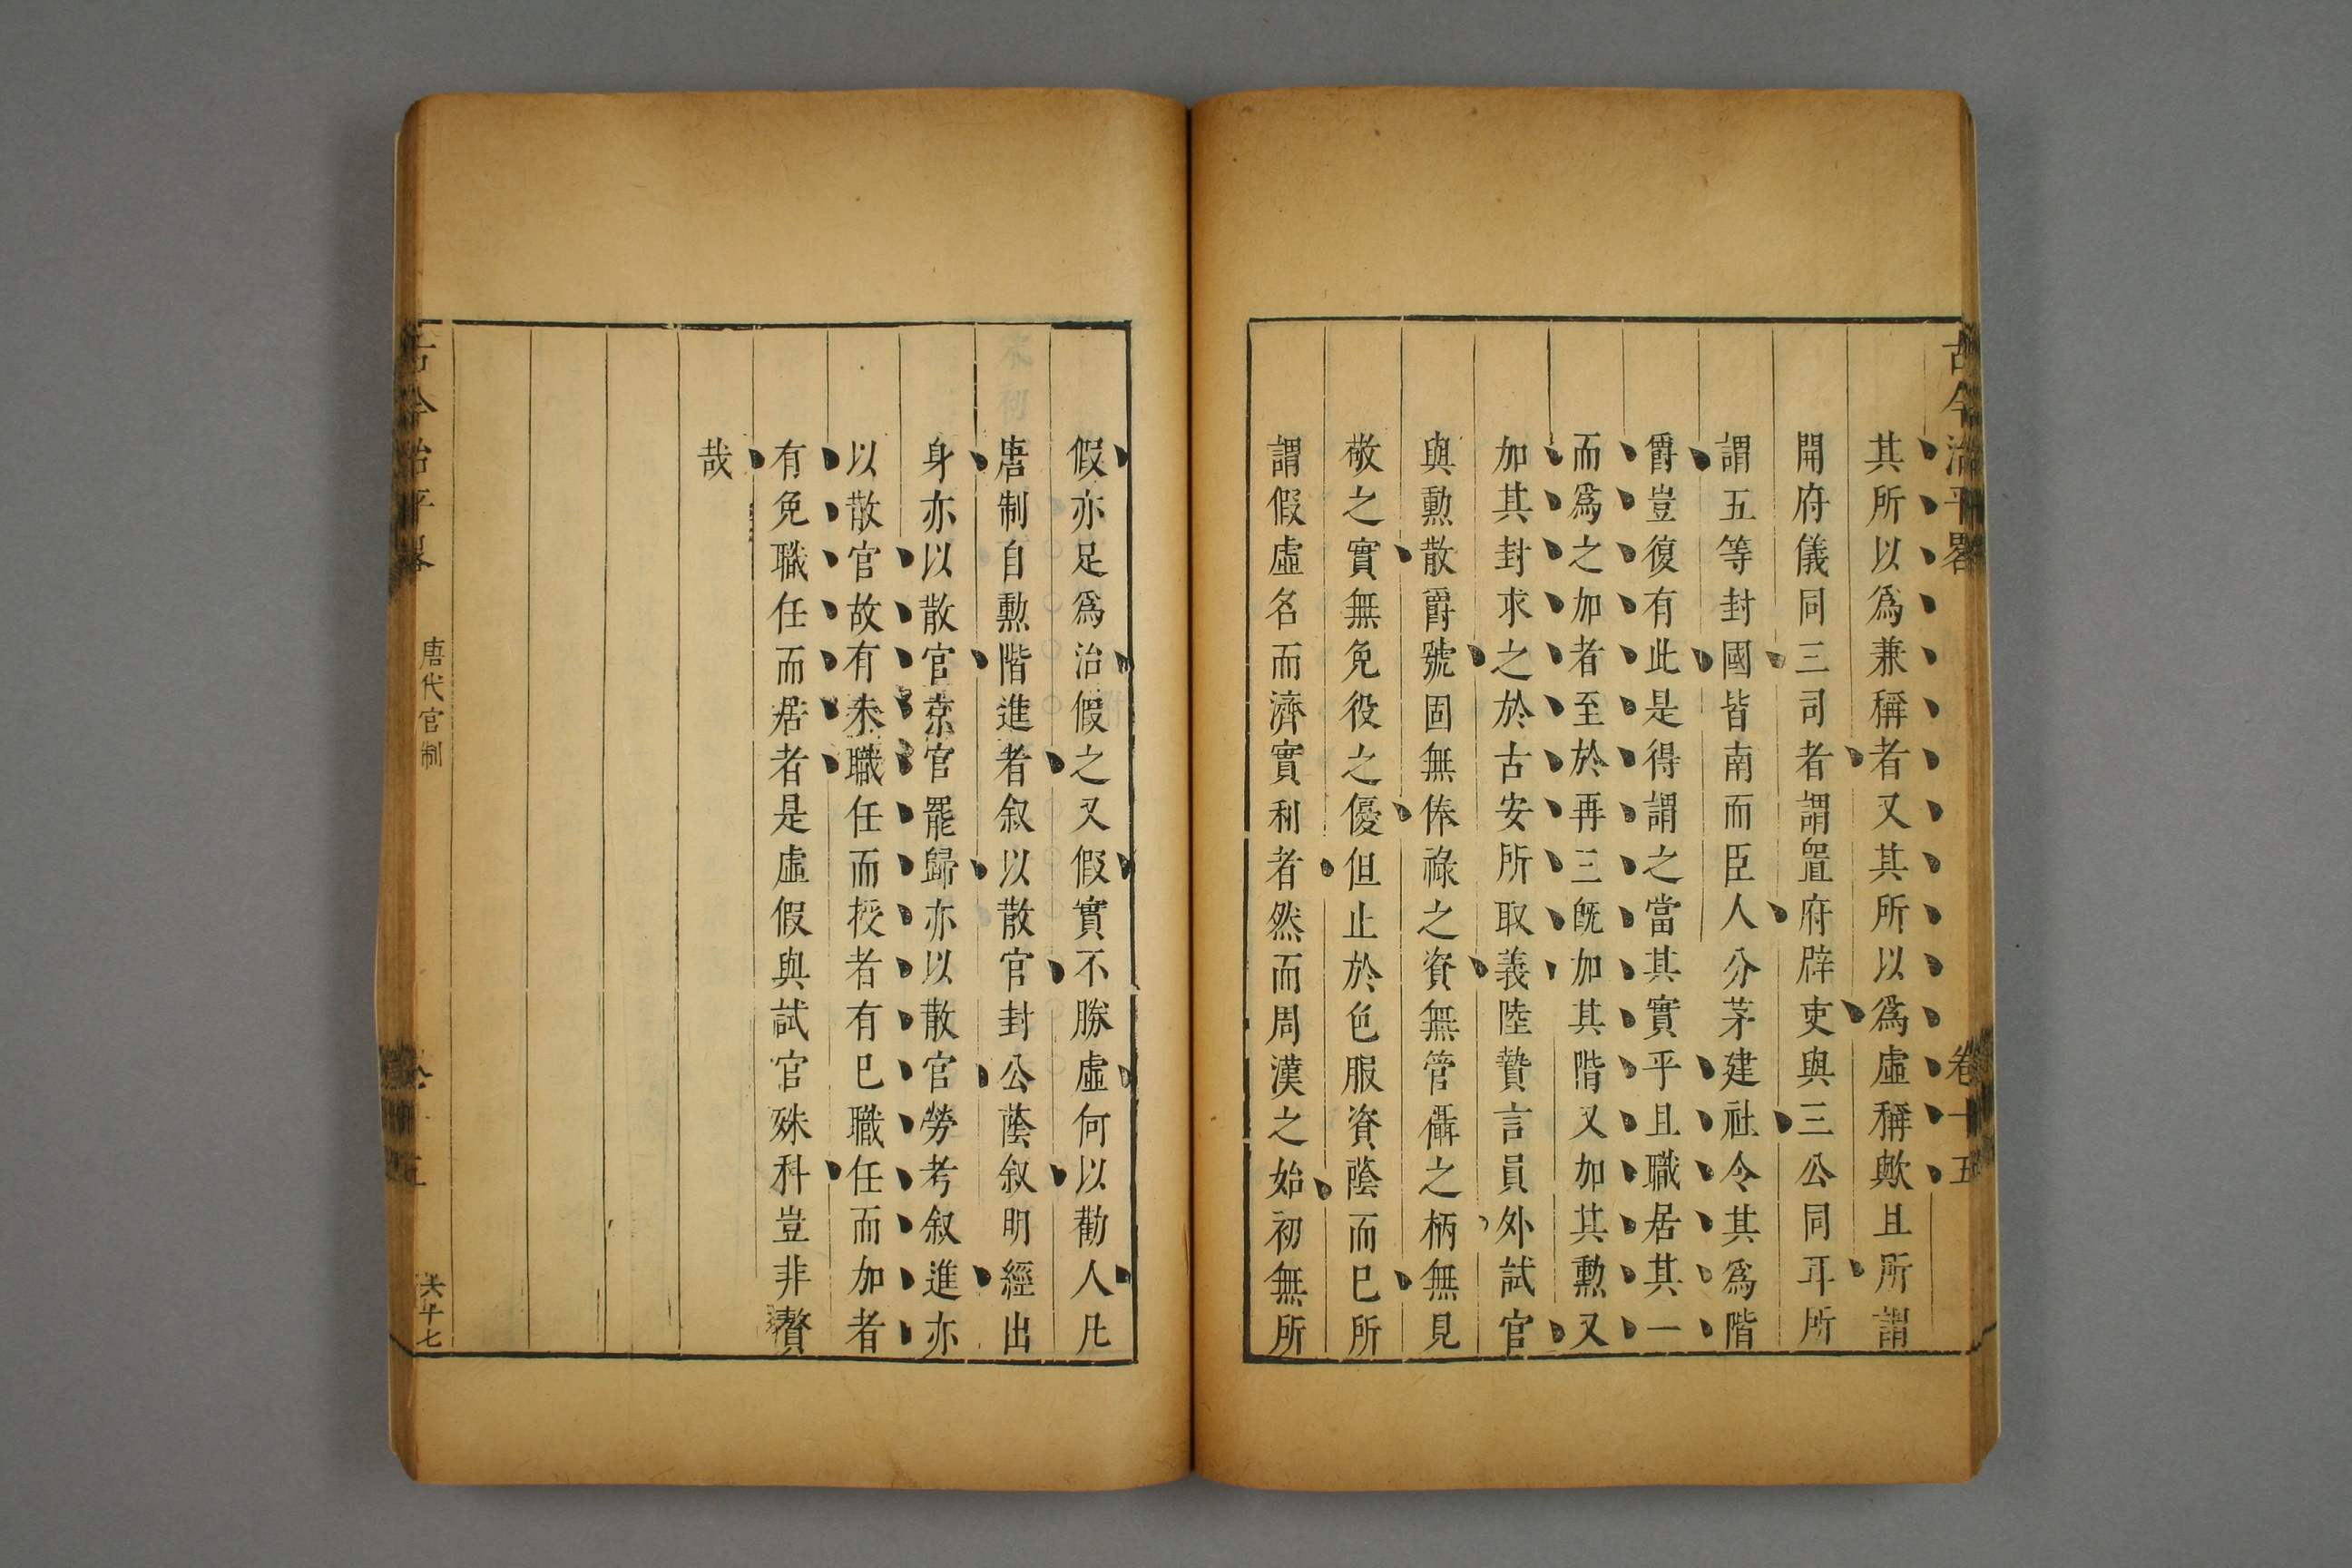 古今治平畧 卷十五
其所以爲兼稱者又其所以爲虛稱歟且所謂
開府儀同三司者謂置府辟吏與三公同耳所
謂五等封國皆南而臣人分茅建社令其爲階
爵豈復有此是得謂之當其實乎且職居其一
而爲之加者至於再三旣加其階又加其勲又
加其封求之於古安所取義陸贄言員外試官
與勲散爵號固無俸祿之資無管攝之柄無見
敬之實無免役之優但止於色服資蔭而已所
謂假虛名而濟實利者然而周漢之始初無所
假亦足爲治假之又假實不勝虛何以勸人凡
唐制自勲階進者叙以散官封公蔭叙明經出
身亦以散官京官罷歸亦以散官勞考叙進亦
以散官故有未職任而授者有已職任而加者
有免職任而居者是虛假與試官殊科豈非贅
哉
古今治平畧 唐代官制